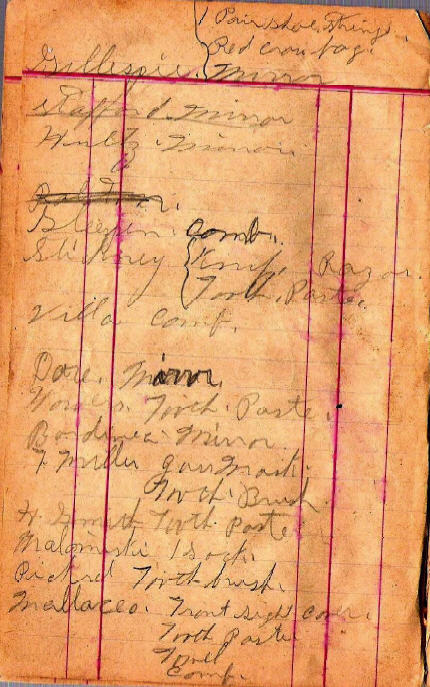 Pair shoe strings.
Red cross bag.
Gillespie. Mirror
Stafford. Mirror
Hultz. Mirror.
Comb.
Stickney Knife, Razor.
Tooth. Paste.
Villa Comb.
Dore. Mirror.
Tooth. Paste.
Mirror
F Miller gas Mask.
Tooth. Brush
H. Smith Tooth Paste
Malominski 1 sock.
Pickrel Tooth brush.
Mallaceo. Front sight cover.
Tooth Paste
Towel
Comb.